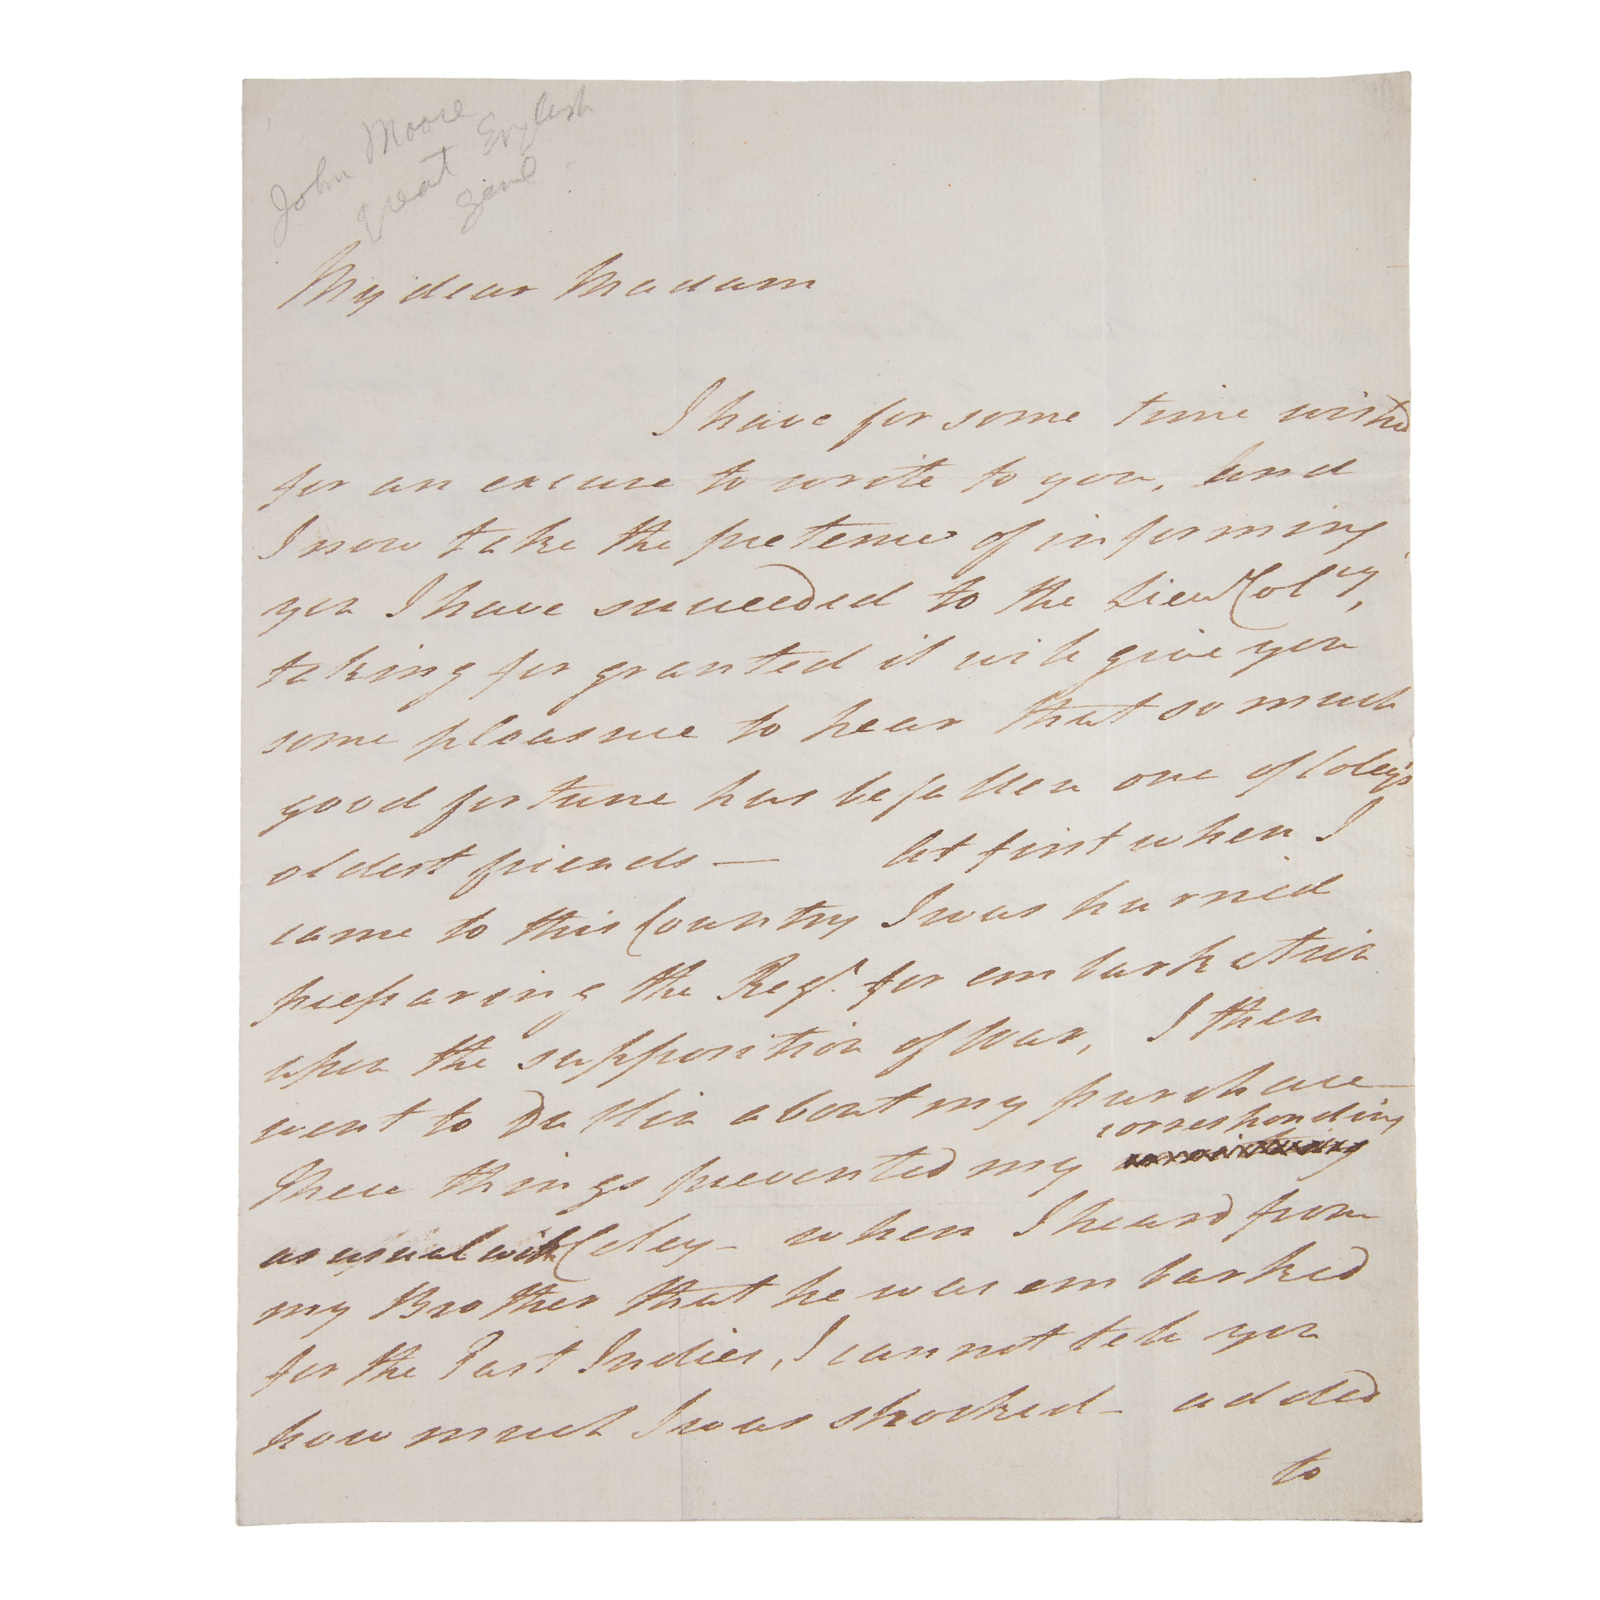 John Moore
great English
My dear Madam
I have for some time wish'd
for an excuse to write to you, and
I now take the pretence of informing
you I have succeeded to the Lieut Colcy,
taking for granted it will give you
some pleasure to hear that so much
good fortune has befallen one of Coley's
oldest friends — At first when I
came to this Country I was hurried
preparing the Regt. for embarkation
upon the supposition of War, I then
went to Dublin about my purchase —
corresponding
These things prevented my
as usual with Coley — when I heard from
my Brother that he was embarked
for the East Indies, I cannot tell you
how much I was shocked — added
to